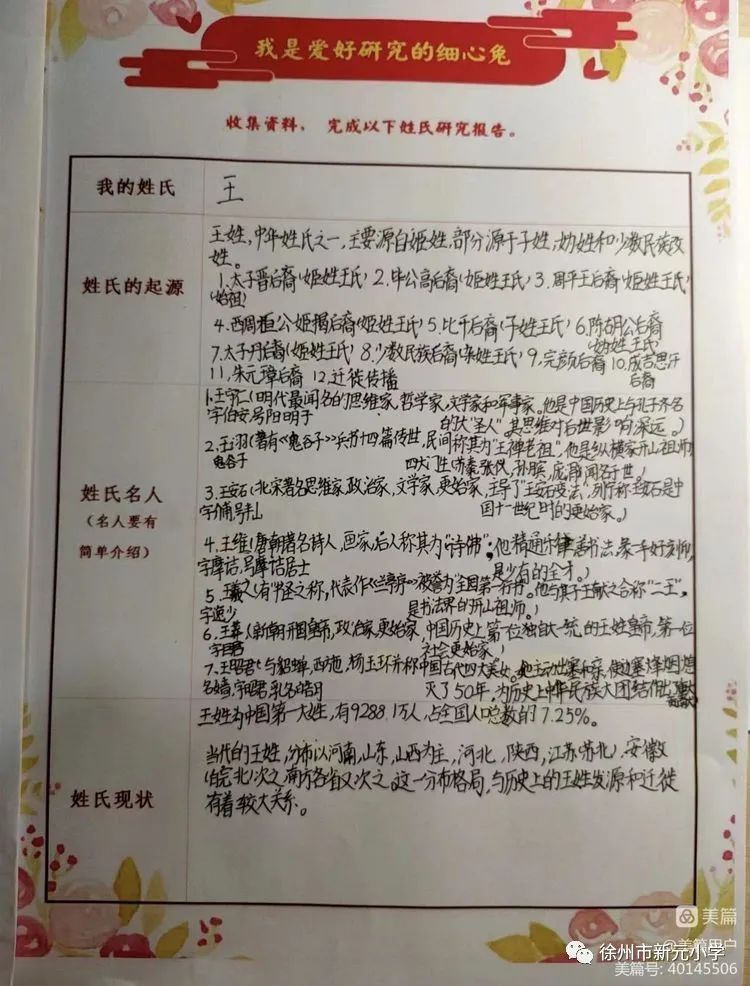 我是爱好研究的细心兔
收集资料， 完成以下姓氏研究报告。
我的姓氏
王
姓氏的起源
王姓，中华姓氏之一，主要源自姬姓，部分源于子姓、妫姓和少数民族改
姓。
1.太子晋后裔(姬姓王氏) 2.毕公高后裔(姬姓王氏) 3.周平王后裔(姬姓王氏)
始祖
4.西周桓公姬揭后裔(姬姓王氏) 5.比干后裔(子姓王氏) 6.陈胡公后裔
(妫姓王氏)
7.太子丹后裔(姬姓王氏) 8.少数民族后裔(杂姓王氏) 9.完颜后裔 10.成吉思汗
后裔
11.朱元璋后裔 12.迁徙传播
姓氏名人
（名人要有
简单介绍）
1.王守仁(明代最闻名的思维家、哲学家，文学家和军事家。他是中国历史上与孔子齐名
字伯安，号阳明子 的大"圣人"。其思维对后世影响深远。)
2.王诩(著有《鬼谷子》兵书十四篇传世，民间称其为"王禅老祖"，他是纵横家开山祖师，
鬼谷子 四大门生(苏秦、张仪，孙膑，庞涓闻名于世)
3.王安石(北宋著名思维家，政治家，文学家，更始家，主导了"王安石变法"，列宁称王安石是中
字介甫，号半山 国十一世纪时的更始家。)
4.王维(唐朝著名诗人，画家，后人称其为"诗佛"，他精通 善书法，
字摩诘，号摩诘居士 是少有的全才。)
5.王羲之(有书圣之称，代表作《兰亭序》被誉为全国第一行书。他与其子王献之合称"二王"，
字逸少 是书法界的开山祖师。)
6.王莽(新朝开国皇帝，政治家，更始家，中国历史上第一位独自大一统的王姓皇帝，第一位
字巨君 社会更始家)
7.王昭君(与貂蝉，西施，杨玉环并称中国古代四大美女。她主动出塞和亲，使边塞烽烟熄
名嫱，字昭君，乳名皓月 灭了50年，为历史上中华民族大团结作出重大
贡献
姓氏现状
王姓为中国第一大姓，有9288.1万人，占全国人口总数的7.25%。
当代的王姓，分布以河南，山东，山西为主，河北，陕西，江苏(苏北)，安徽
(皖北)次之，南方各省又次之。这一分布格局，与历史上的王姓发源和迁徙
有着较大关系。
美篇
@美篇用户
徐州市新元小学
美篇号: 40145506